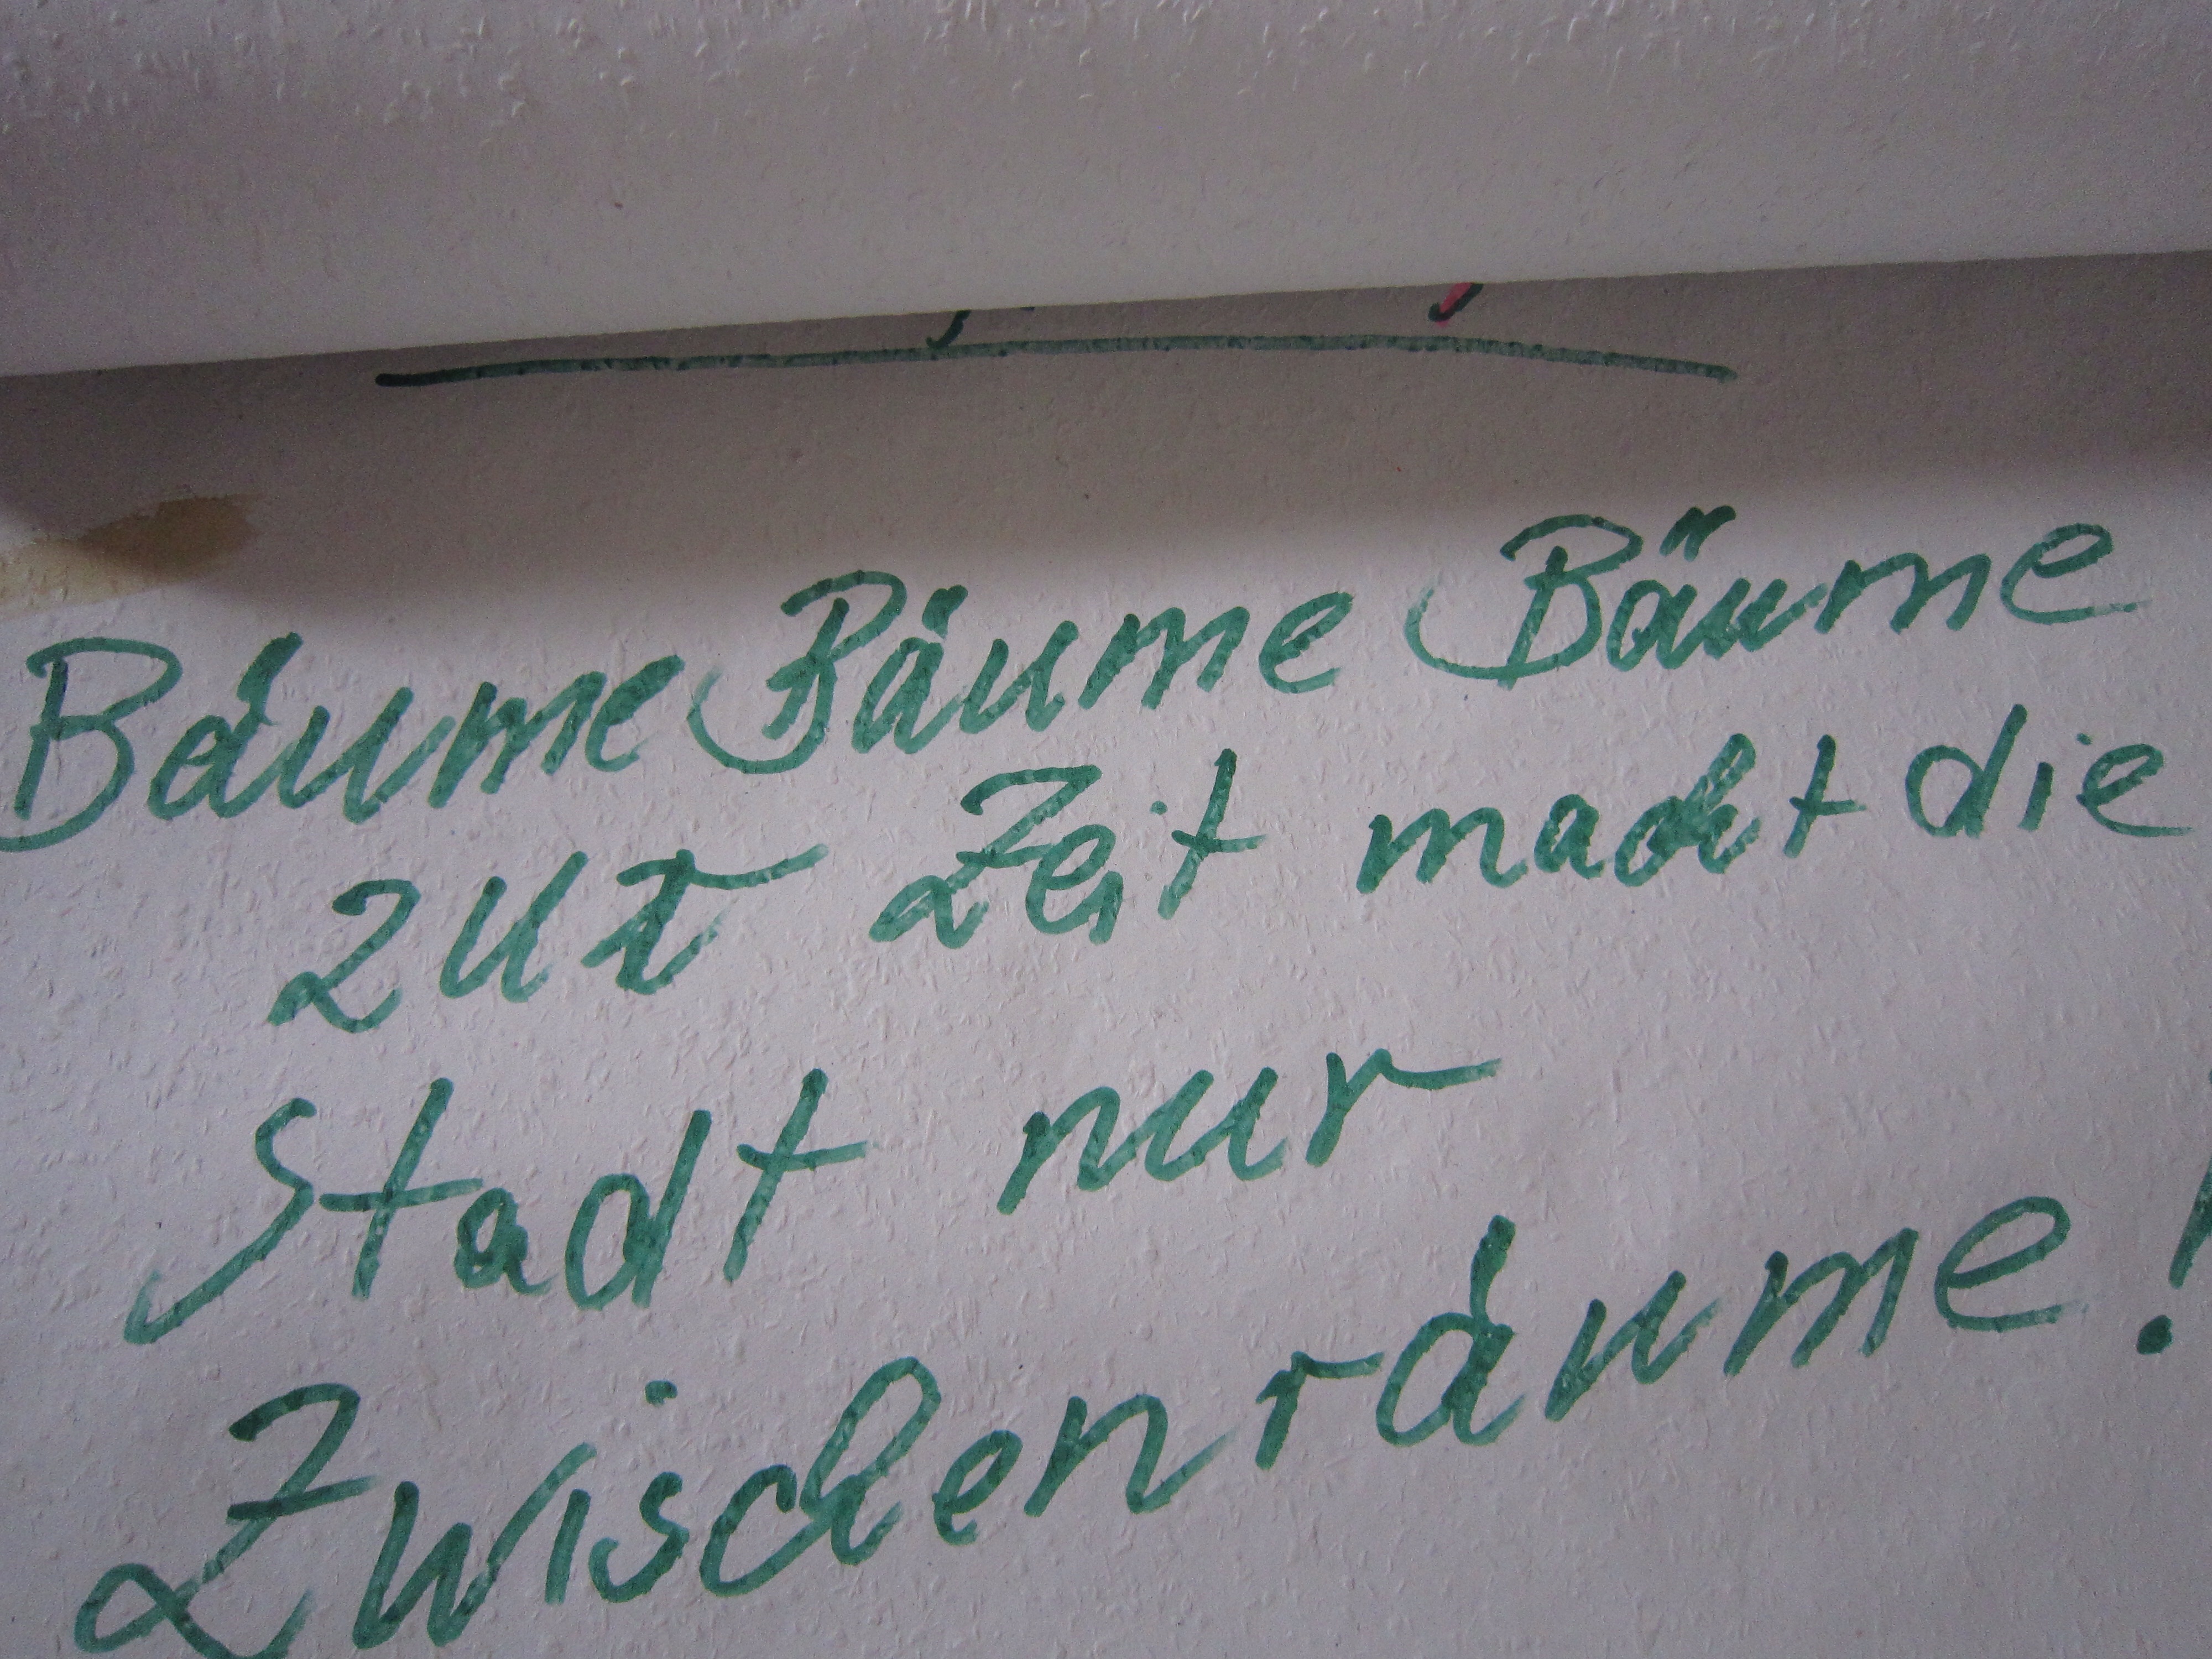 Bäume Bäume Bäume
zur Zeit macht die
Stadt nur
Zwischenräume!